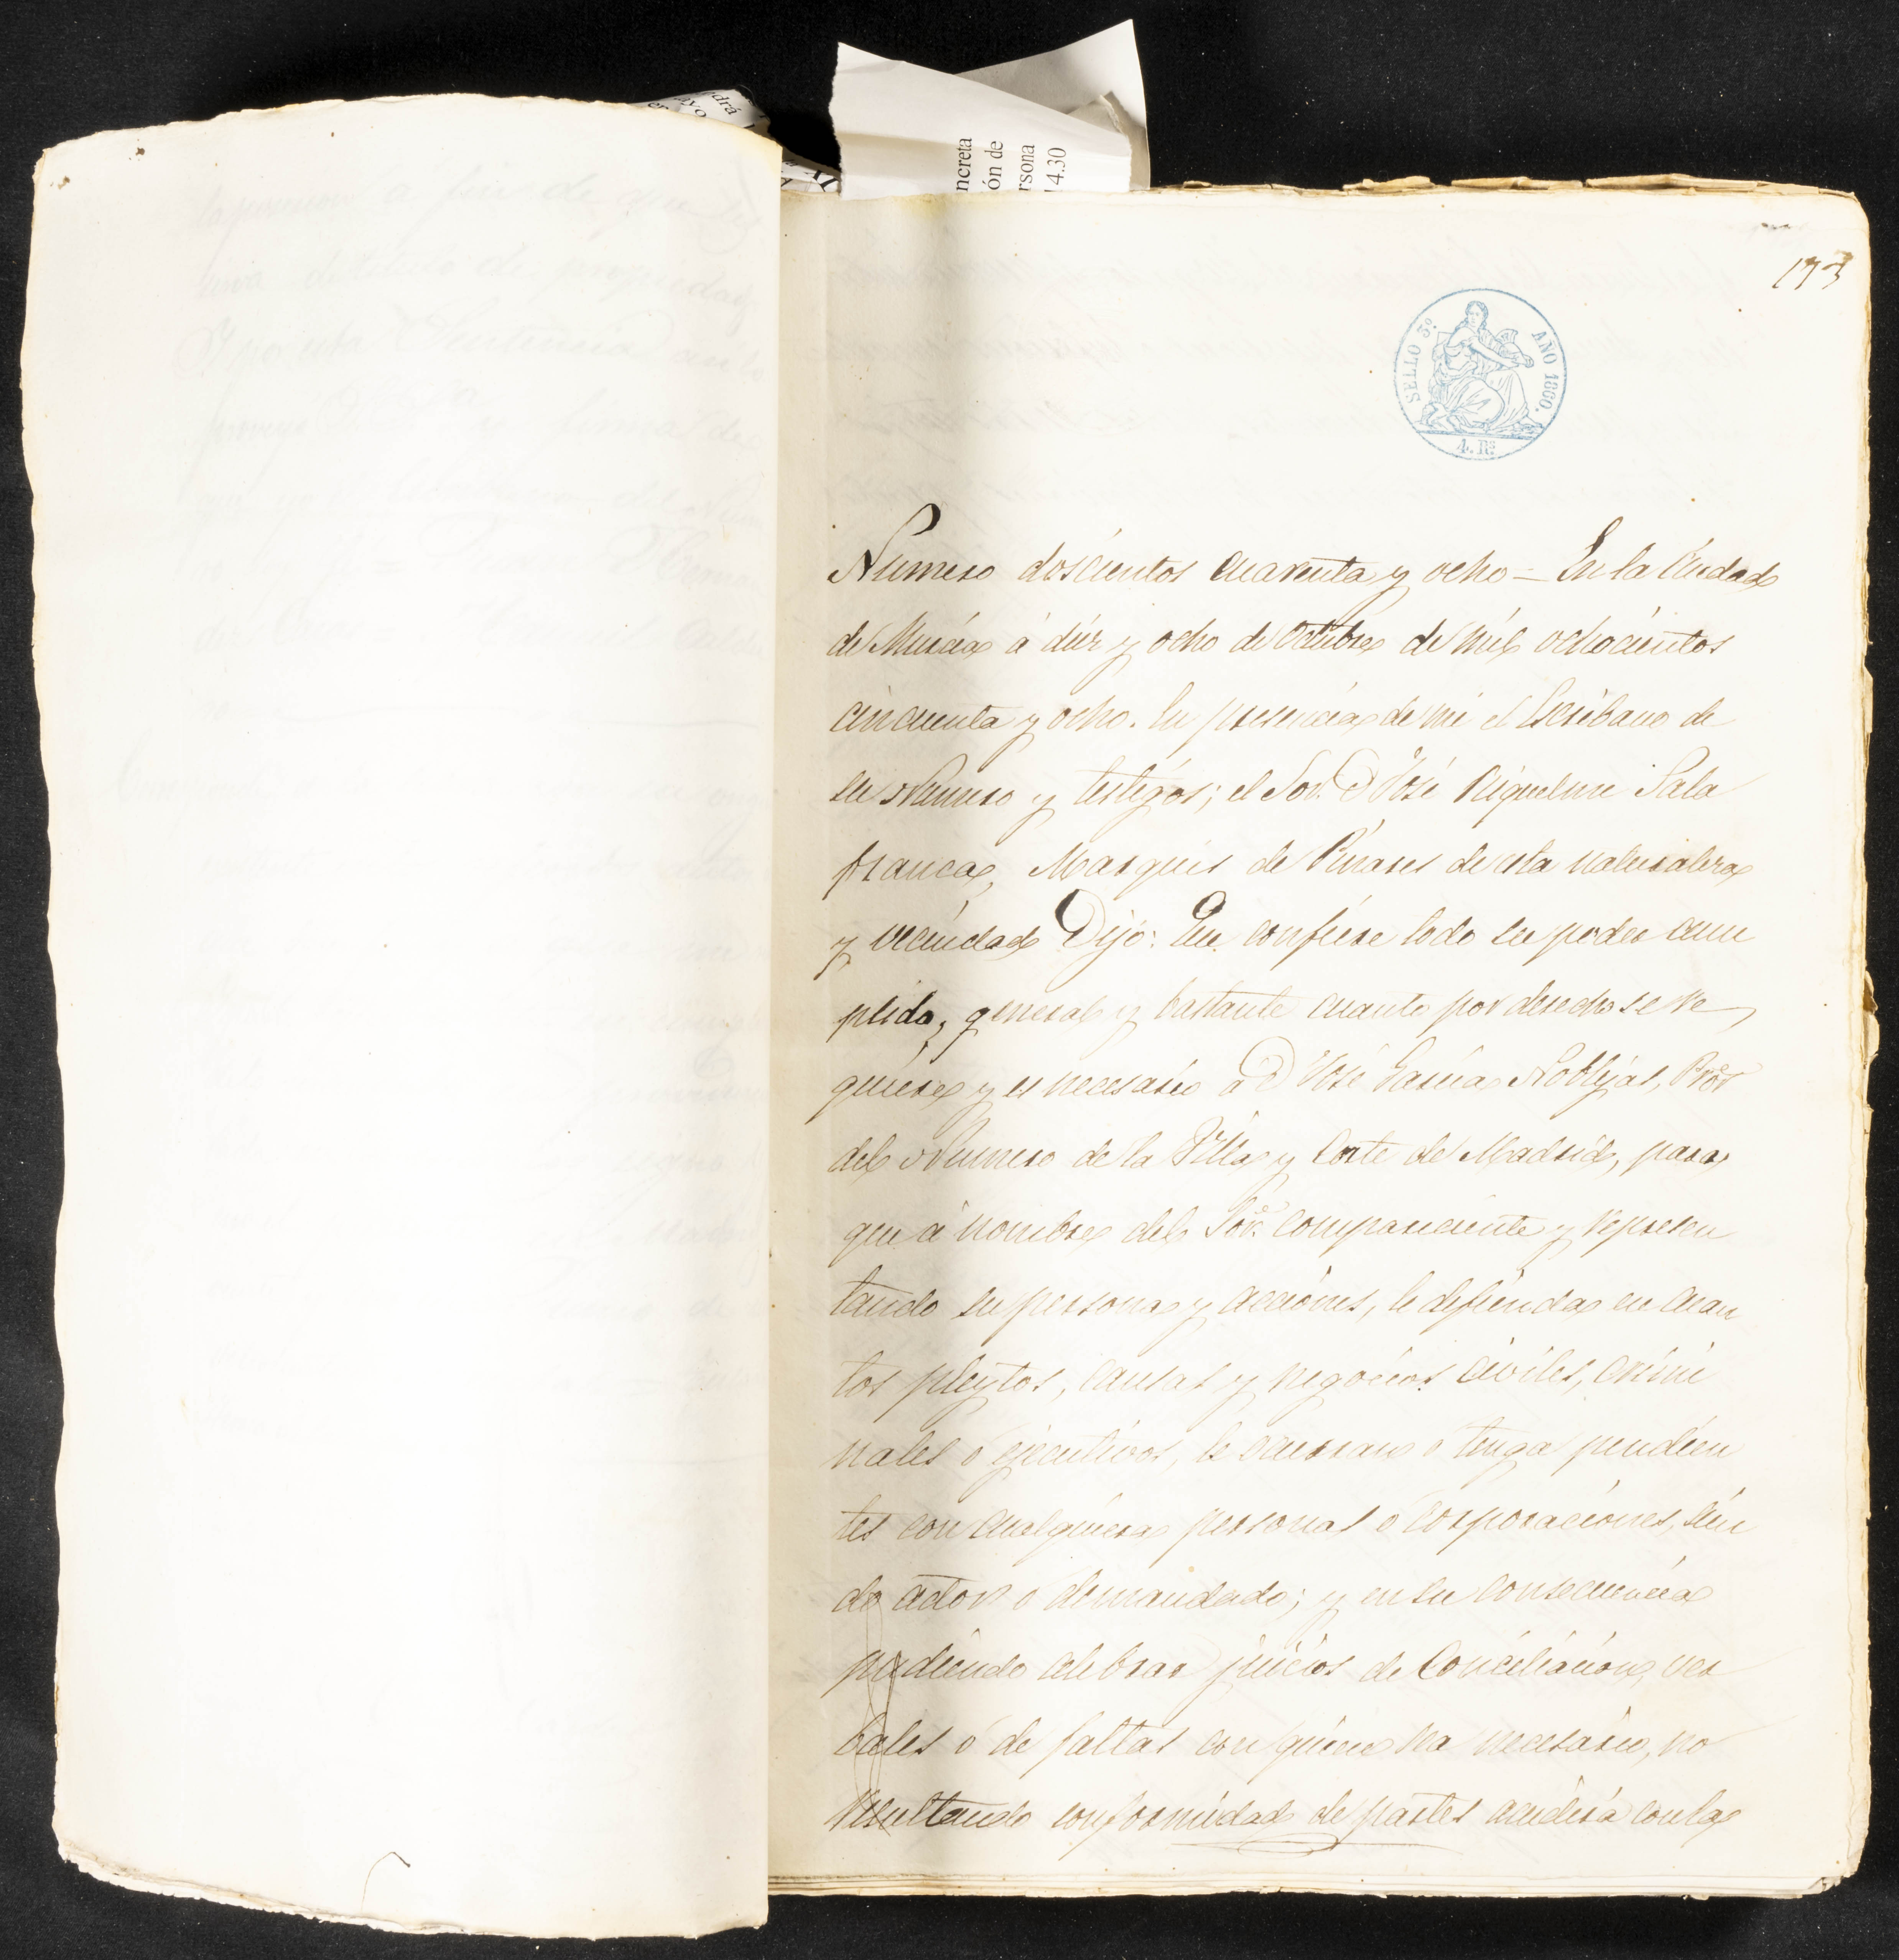 ncreta
ón de
rsona
14.30
drá
173
SELLO 3º. AÑO 1860.
4. Rs
Numero doscientos cuarenta y ocho = En la Ciudad
de Murcia á diez y ocho de Octubre de mil ochocientos
cincuenta y ocho. En presencia de mi el Escribano de
su Numero y testigos; el Sor. D José Riquelme Sala
franca, Marques de Pinares de esta naturaleza
y vecindad Dijo: Que confiere todo su poder cum
plido, general y bastante cuanto por derecho se re
quiere y es necesario a D José Garcia Noblejas, Pror
del Numero de la Villa y Corte de Madrid, para
que á nombre del Sor. compareciente y represen
tando su persona y acciones, le defienda en cuan
tos pleytos, causas y negocios civiles, crimi
nales ó ejecutivos, le ocurran ó tenga pendien
tes con cualquiera personas ó corporaciones, sien
do actor ó demandado; y en su consecuencia
pudiendo celebrar juicios de Conciliacion, ver
bales ó de faltas con quien sea necesario, no
resultando conformidad de partes acudirá con la